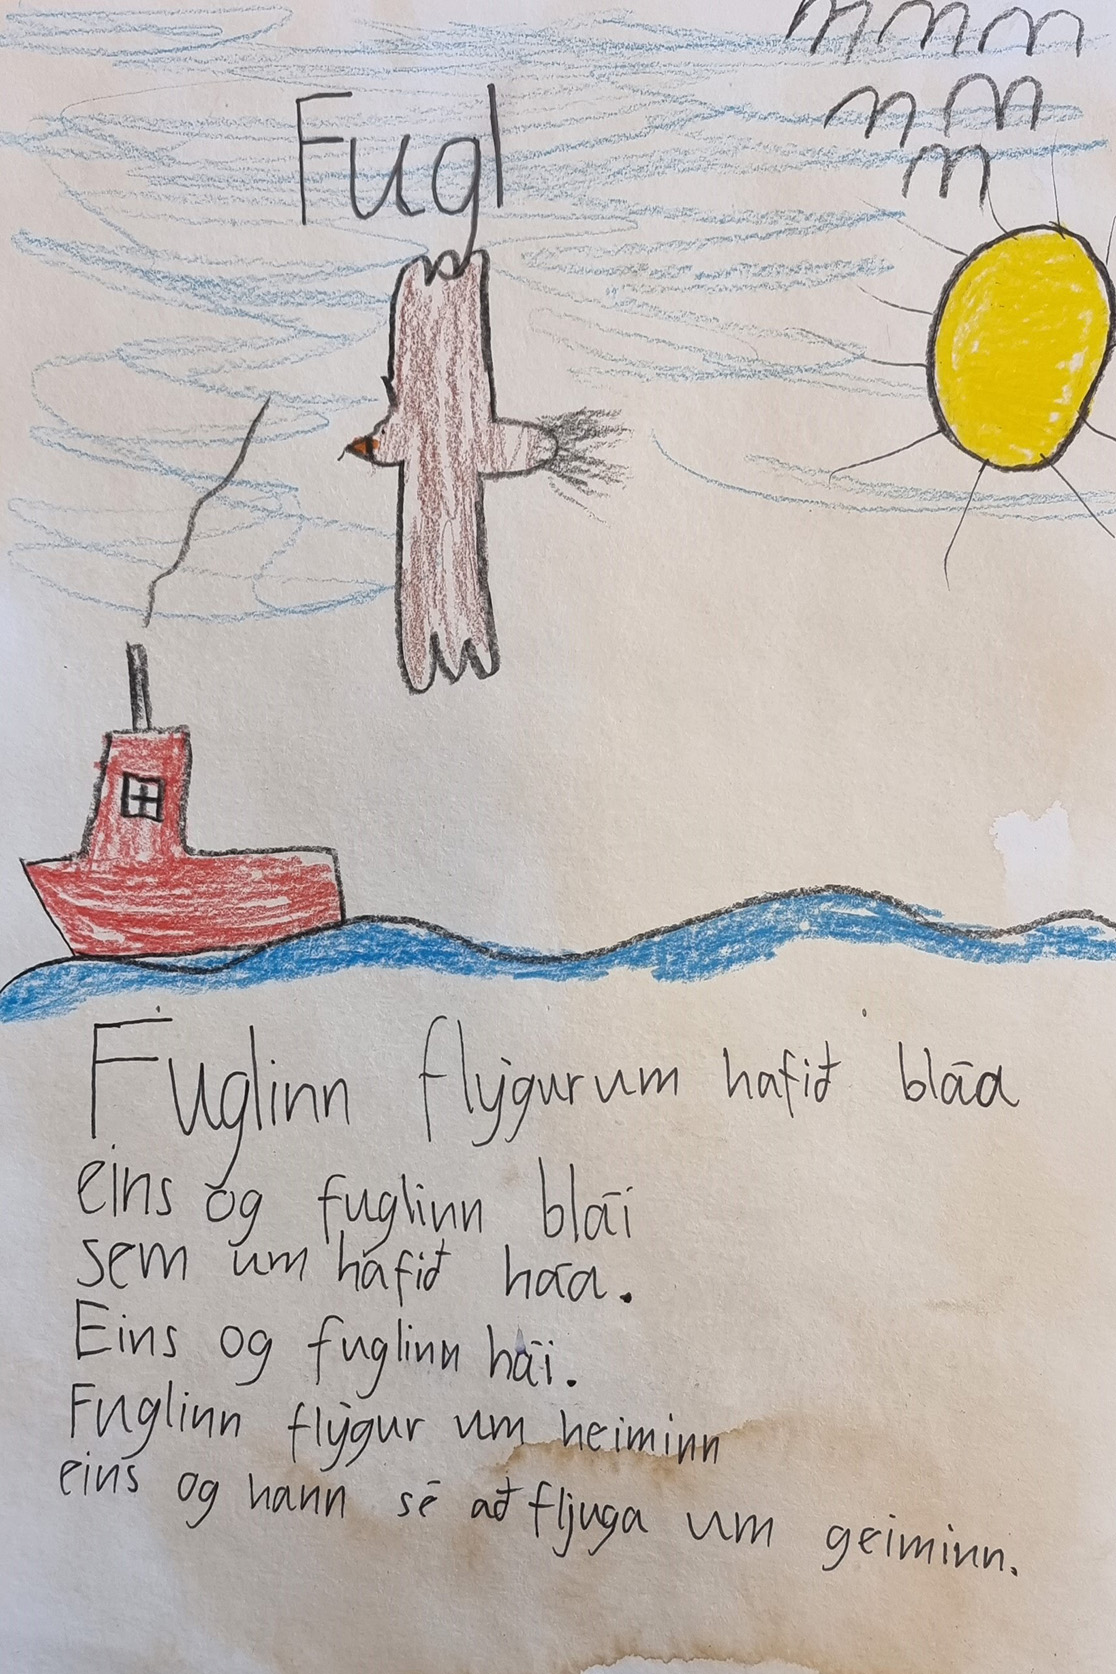 Fugl
Fuglinn flýgur um hafið bláa
eins og fuglinn blái
sem um hafið háa.
Eins og fuglinn hái.
Fuglinn flýgur um heiminn
eins og hann sé að fljuga um geiminn.